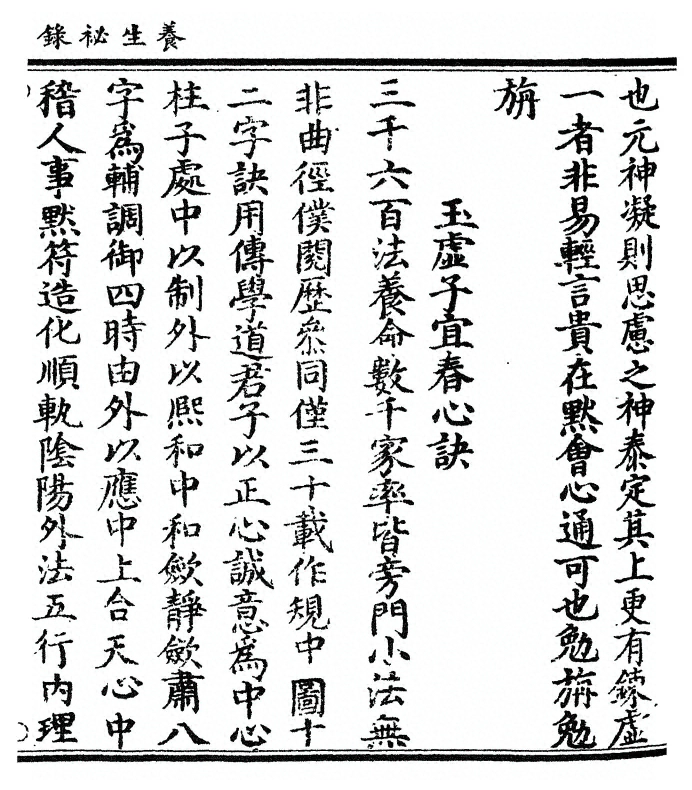 養生祕錄
也元神凝則思慮之神泰定其上更有鍊虛
一者非易輕言貴在默會心通可也勉旃勉
旃
玉虛子宜春心訣
三千六百法養命數千家率皆旁門小法無
非曲徑僕閱歷叅同僅三十載作規中圖十
二字訣用傳學道君子以正心誠意為中心
柱子處中以制外以熙和中和斂靜斂肅八
字為輔調御四時由外以應中上合天心中
稽人事默符造化順軌陰陽外法五行內理